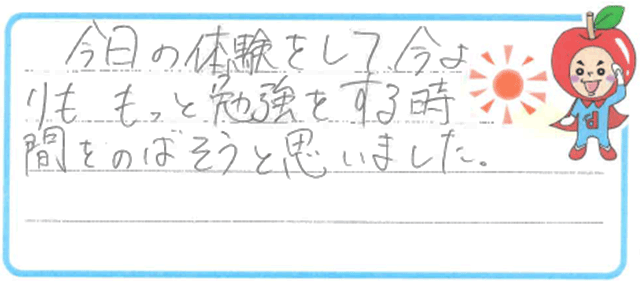 今日の体験をして、今よ
りも もっと勉強をする時
間をのばそうと思いました。